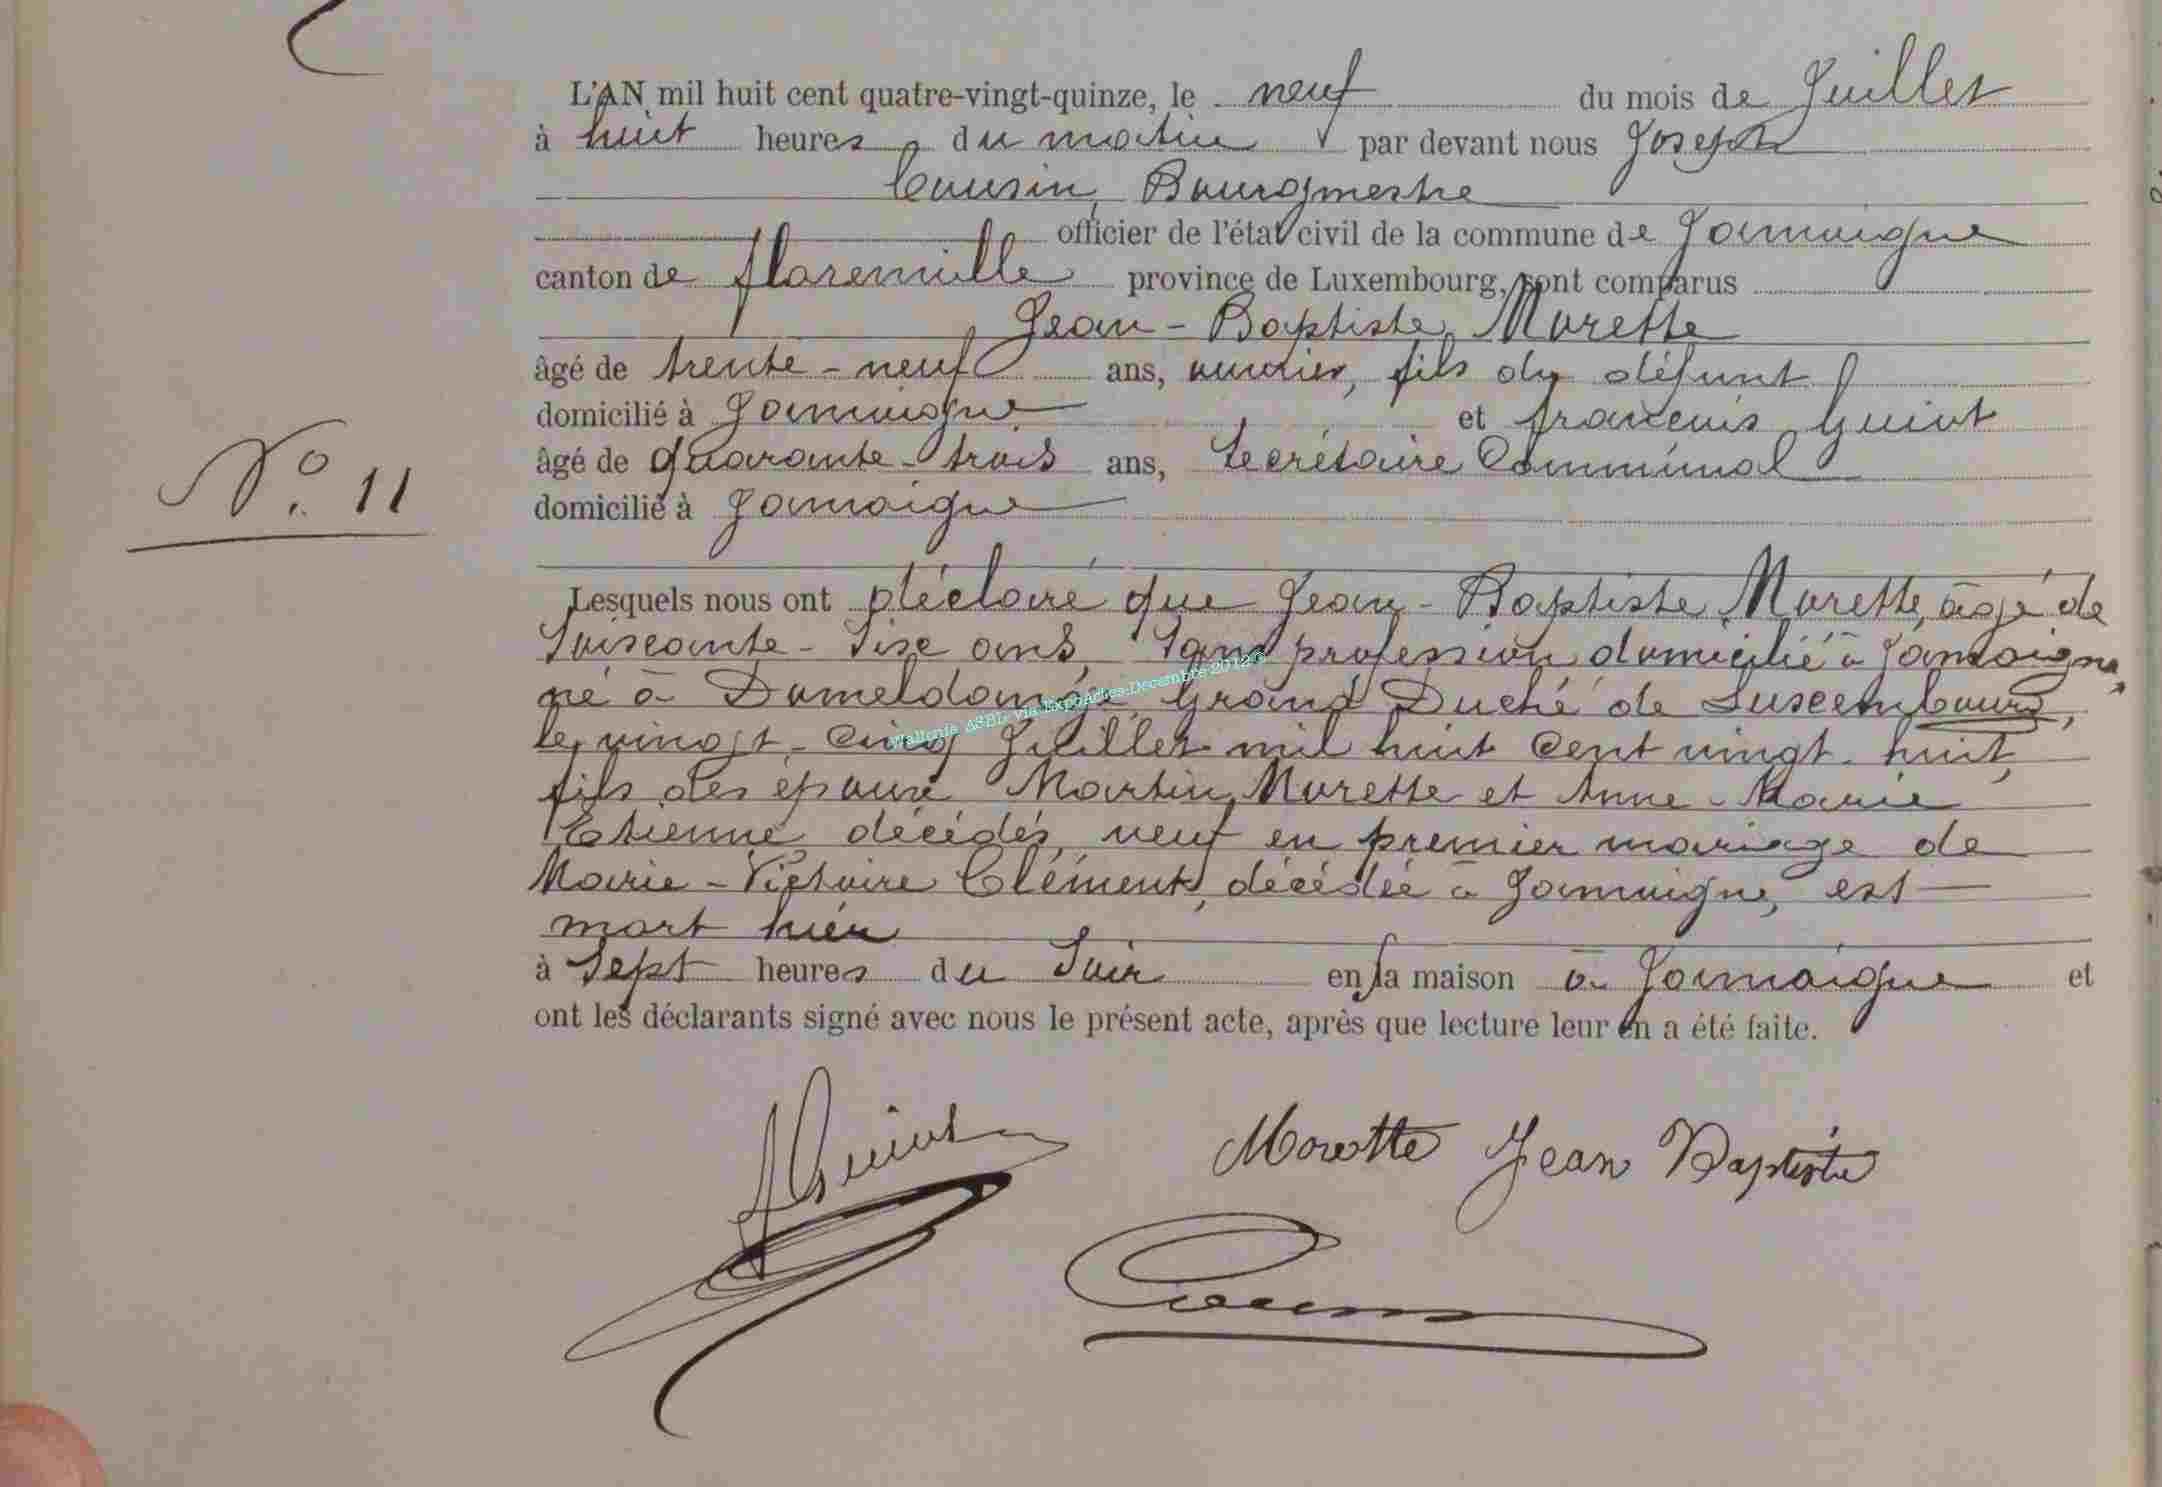 L'AN mil huit cent quatre-vingt-quinze, le neuf du mois de Juillet
à huit heures du matin par devant nous Joseph
Cousin, Bourgmestre
officier de l'état civil de la commune de Jamoigne
canton de florenville province de Luxembourg, sont comparus
Jean-Baptiste Morette
âgé de trente-neuf ans, ouvrier, fils du défunt
domicilié à Jamoigne et francois Guiot
âgé de quarante-trois ans, Secrétaire Communal
domicilié à Jamoigne
No. 11
Lesquels nous ont déclaré que Jean-Baptiste Morette, âgé de
Soixante-Six ans, Sans profession, domicilié à Jamoigne,
né à Domeldange, Grand Duché de Luxembourg,
le vingt-cinq Juillet mil huit cent vingt-huit,
fils des époux Martin Morette et Anne-Marie
Etienne, décédés, veuf en premier mariage de
Marie-Victoire Clément, décédée à Jamoigne, est
mort hier
à Sept heures du Soir en sa maison à Jamoigne et
ont les déclarants signé avec nous le présent acte, après que lecture leur en a été faite.
Wallonia ASBL via ExpoActes Décembre 2012 ©
FGuiot
Morette Jean Baptiste
Cousin